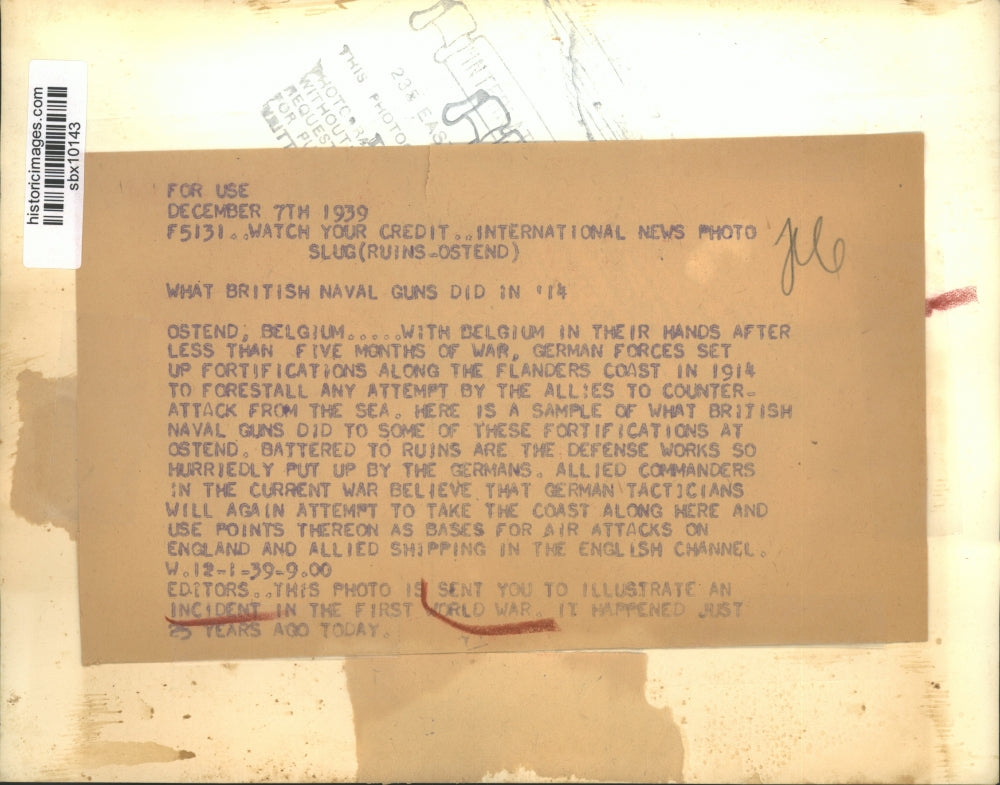 historicimages.com
sbx10143
THIS PHOTO
235 EAS
PHOTOGRA
WITHOUT
REQUEST
FOR PU
FOR USE
DECEMBER 7TH 1939
F5131..WATCH YOUR CREDIT..INTERNATIONAL NEWS PHOTO
SLUG(RUINS-OSTEND)
WHAT BRITISH NAVAL GUNS DID IN '14
OSTEND, BELGIUM.....WITH BELGIUM IN THEIR HANDS AFTER
LESS THAN FIVE MONTHS OF WAR, GERMAN FORCES SET
UP FORTIFICATIONS ALONG THE FLANDERS COAST IN 1914
TO FORESTALL ANY ATTEMPT BY THE ALLIES TO COUNTER-
ATTACK FROM THE SEA. HERE IS A SAMPLE OF WHAT BRITISH
NAVAL GUNS DID TO SOME OF THESE FORTIFICATIONS AT
OSTEND. BATTERED TO RUINS ARE THE DEFENSE WORKS SO
HURRIEDLY PUT UP BY THE GERMANS. ALLIED COMMANDERS
IN THE CURRENT WAR BELIEVE THAT GERMAN TACTICIANS
WILL AGAIN ATTEMPT TO TAKE THE COAST ALONG HERE AND
USE POINTS THEREON AS BASES FOR AIR ATTACKS ON
ENGLAND AND ALLIED SHIPPING IN THE ENGLISH CHANNEL.
W.12-1-39-9.00
EDITORS..THIS PHOTO IS SENT YOU TO ILLUSTRATE AN
INCIDENT IN THE FIRST WORLD WAR. IT HAPPENED JUST
25 YEARS AGO TODAY.